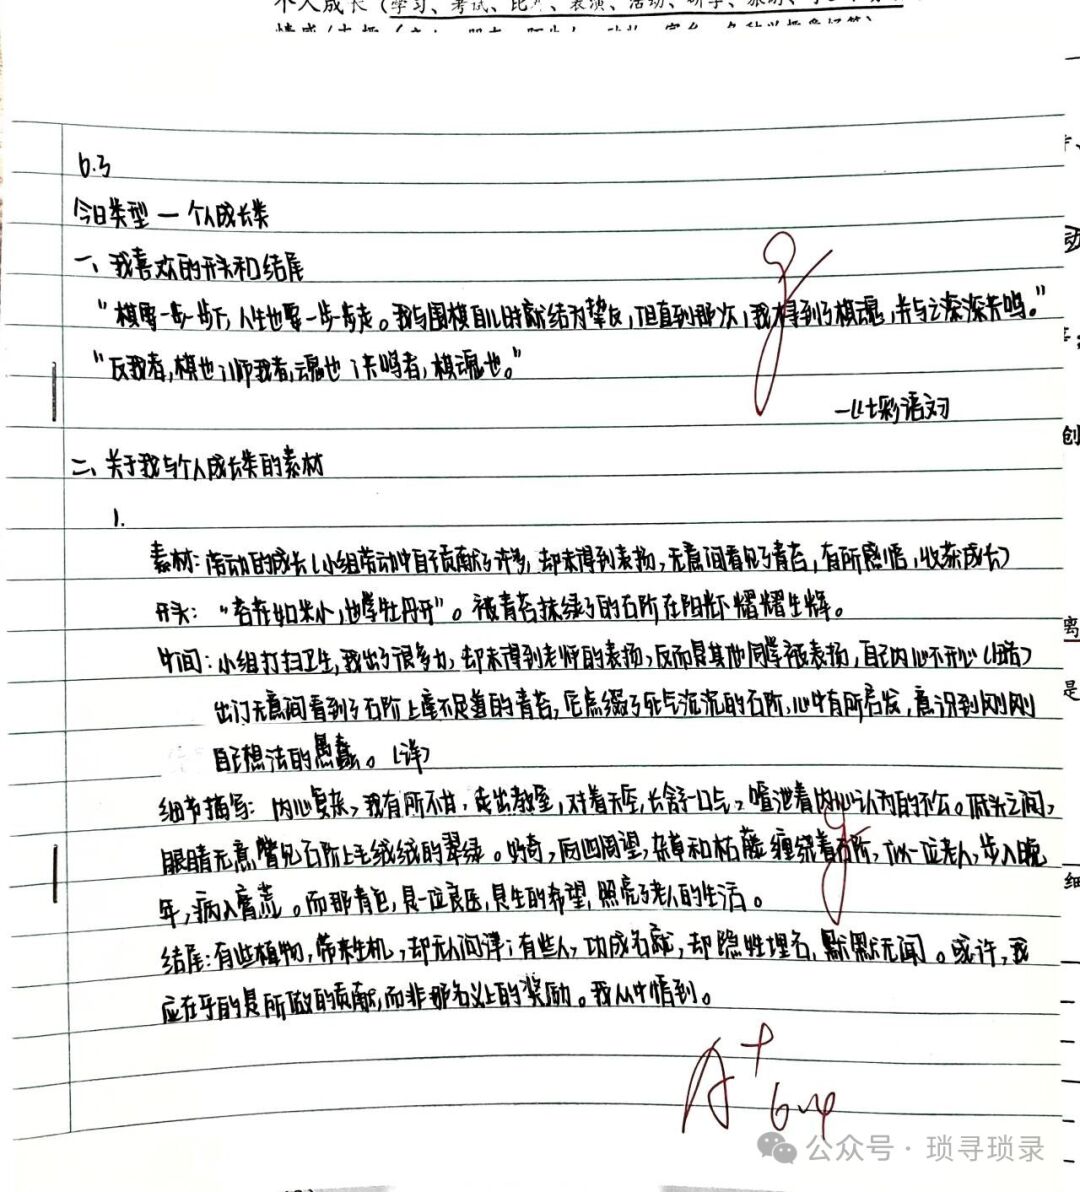 个人成长（学习、考试、比赛、表演、活动、研学、旅游、
6.3
今日类型一个人成长类
一、我喜欢的开头和结尾
“棋要一步一步下，人生也要一步一步走。我与围棋自儿时就结为挚友，但直到那次，我才得到了棋魂，并与之深深共鸣。”
“友我者，棋也；师我者，魂也；共鸣者，棋魂也。”
一《七彩语文》
二、关于我与个人成长类的素材
1.
素材：劳动的成长（小组劳动中自己贡献了许多，却未得到表扬，无意间看见了青苔，有所感悟，收获成长）
开头：“苔花如米小，也学牡丹开”。被青苔抹绿了的石阶在阳光下熠耀生辉。
中间：小组打扫卫生，我出了很多力，却未得到老师的表扬，反而是其他同学被表扬，自己内心不开心（略）
出门无意间看到了石阶上毫不足道的青苔，它点缀了死气沉沉的石阶，心中有所启发，意识到刚刚
自己想法的愚蠢。（详）
细节描写：内心复杂，我有所不甘，走出教室，对着天空，长舒一口气，喧泄着内心认为的不公。低头之间，
眼睛无意瞥见石阶上毛绒绒的翠绿。好奇，四周望，杂草和枯藤缠绕着石阶，似一位老人，步入晚
年，病入膏荒。而那青色，是一位良医，是生的希望，照亮了老人的生活。
结尾：有些植物，带来生机，却无人问津；有些人，功成名就，却隐姓埋名，默默无闻。或许，我
应在乎的是所做的贡献，而非那名义上的奖励。我从中悟到。
A+
公众号·琐寻琐录